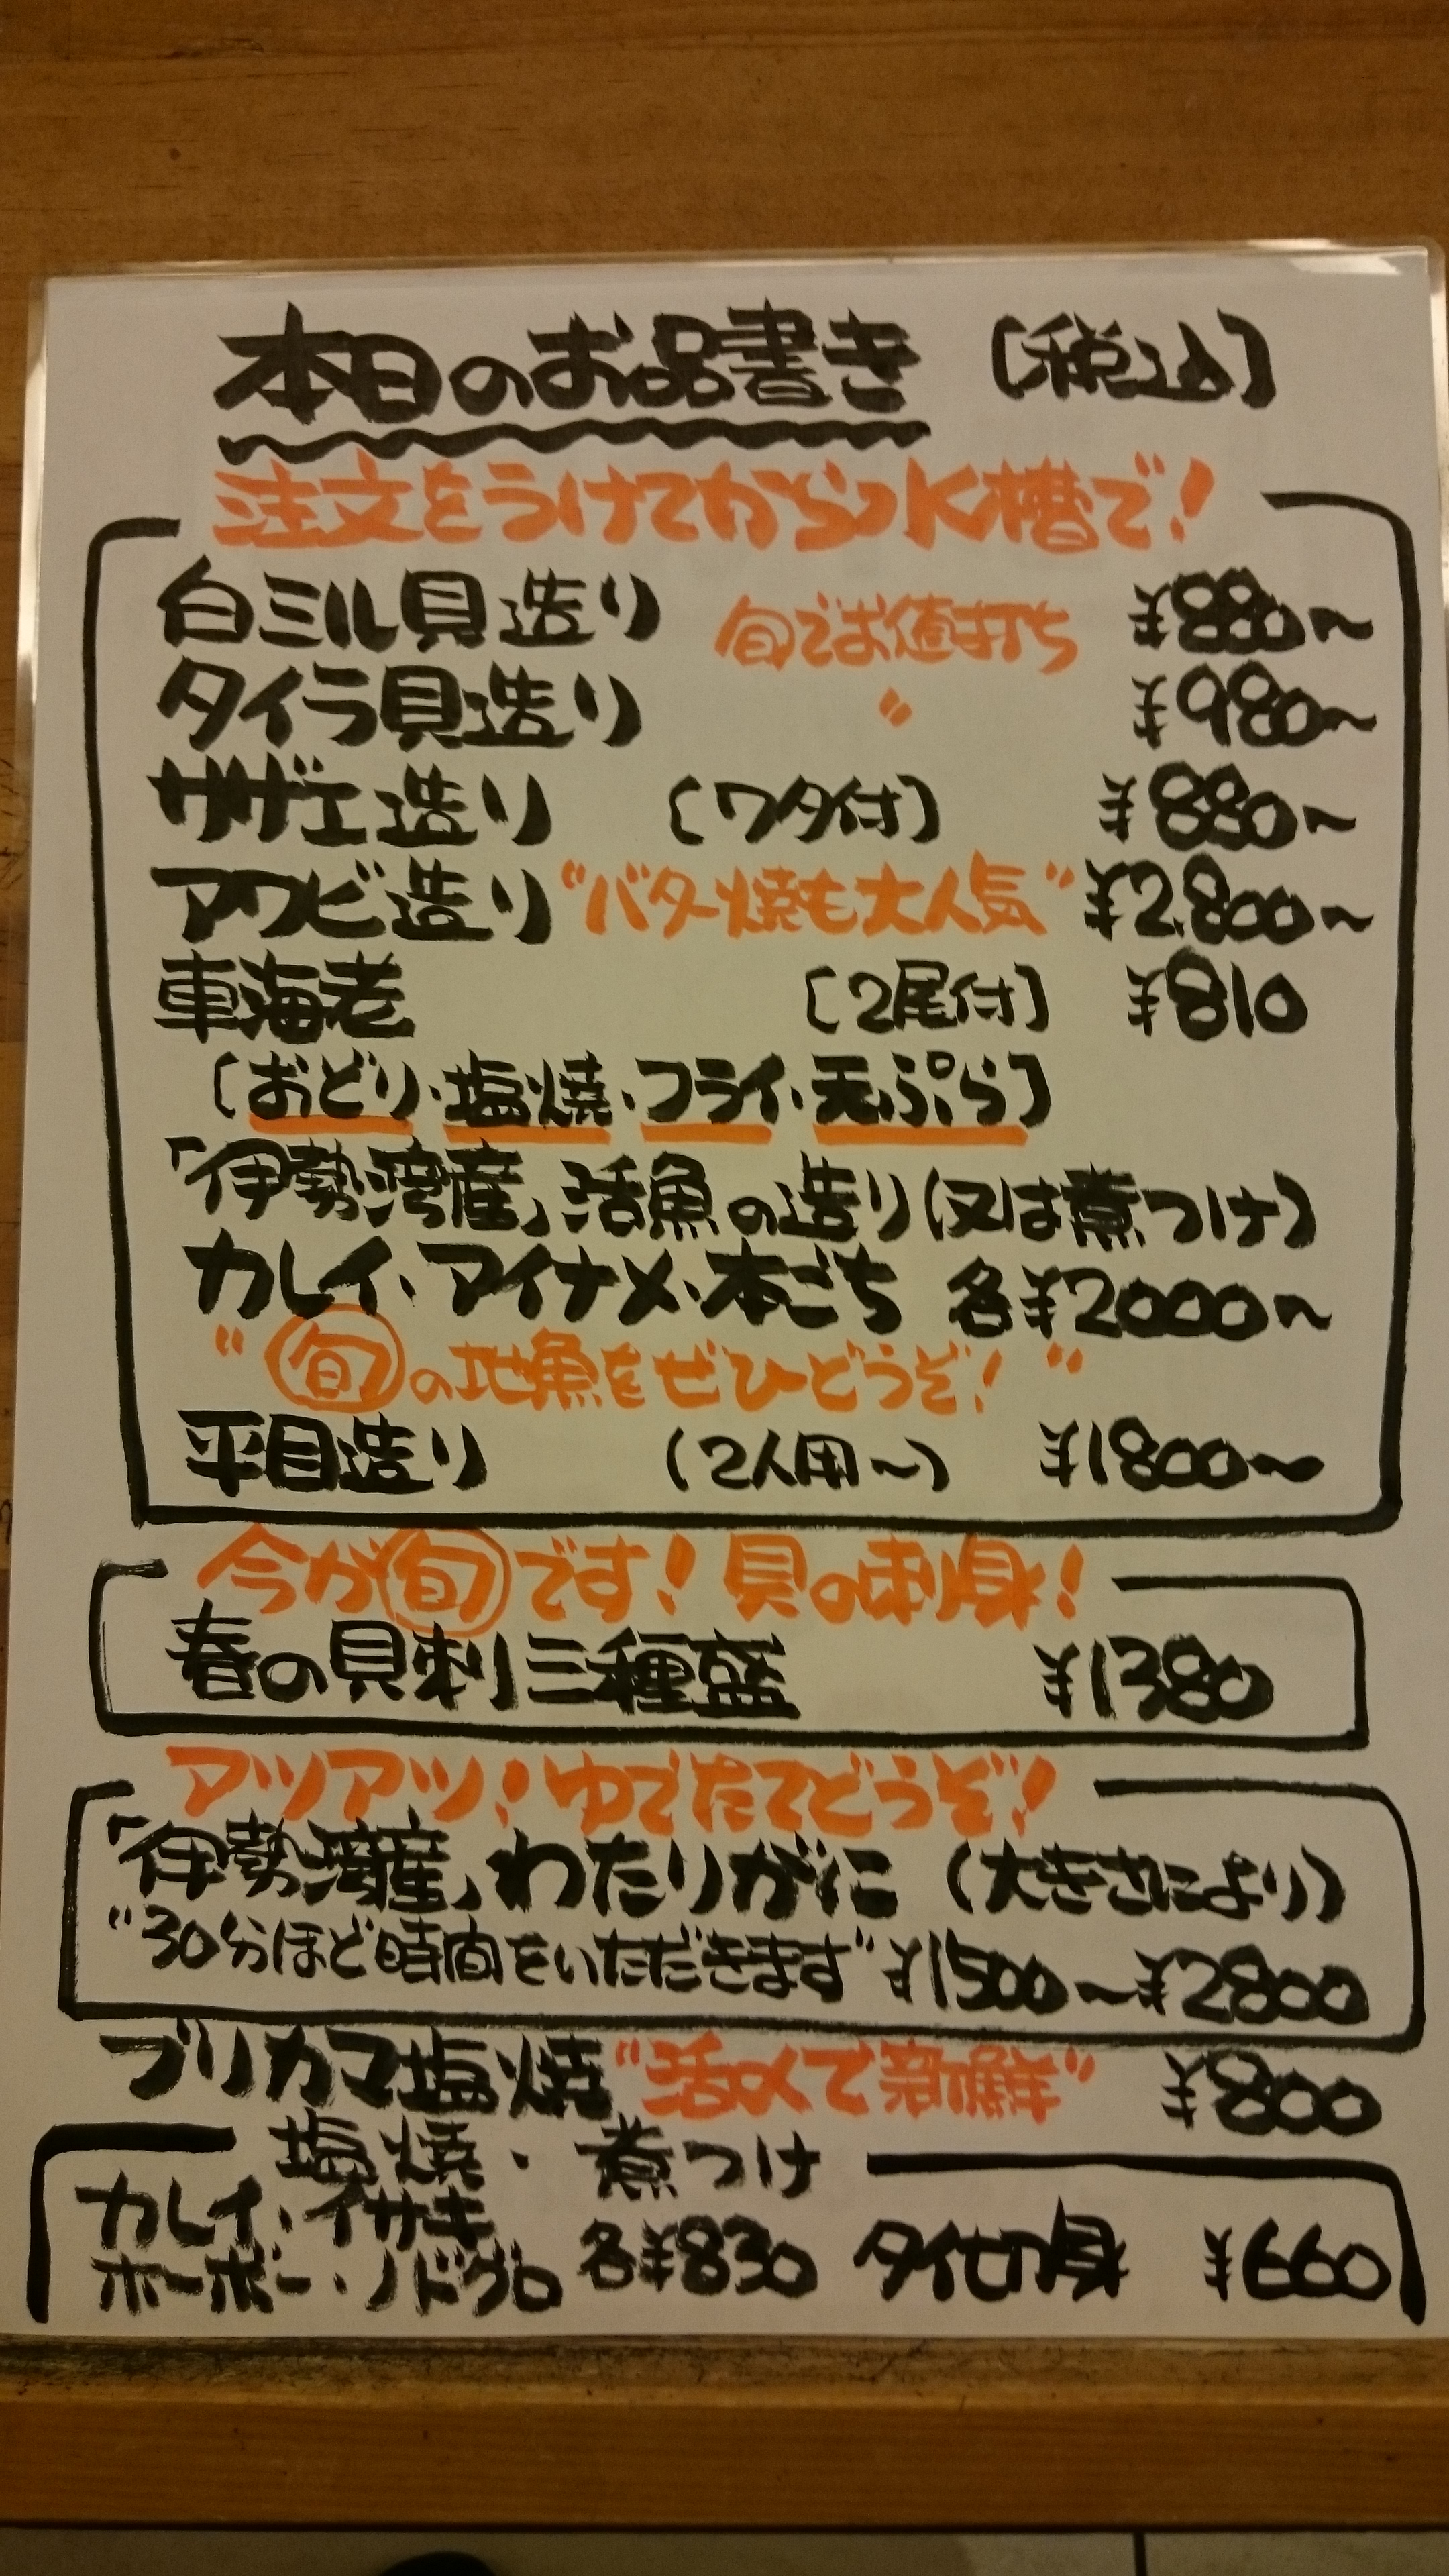 本日のお品書き 〔税込〕
注文をうけてから水槽で!
白ミル貝造り 旬でお値打ち ¥880~
タイラ貝造り 〃 ¥980~
サザエ造り 〔ワタ付〕 ¥880~
アワビ造り "バター焼も大人気" ¥2,800~
車海老 〔2尾付〕 ¥810
〔おどり・塩焼・フライ・天ぷら〕
「伊勢湾産」活魚の造り(又は煮つけ)
カレイ・アイナメ・本ごち 各¥2000~
"旬の地魚をぜひどうぞ!"
平目造り (2人用~) ¥1800~
今が旬です!貝の刺身!
春の貝刺三種盛 ¥1380
アツアツ!ゆでたてどうぞ!
「伊勢湾産」わたりがに(大きさにより)
"30分ほど時間をいただきます" ¥1500~¥2800
ブリカマ塩焼 "活〆で新鮮" ¥800
塩焼・煮つけ
カレイ・イサキ
ホーボー・ノドグロ 各¥830 タイ切身 ¥660